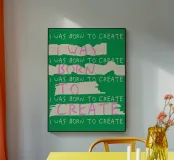 I WAS BORN TO CREATE
I WAS
I WAS BORN TO CREATE
BORN
I WAS BORN TO CREATE
TO
I WAS BORN TO CREATE
CREATE
I WAS BORN TO CREATE